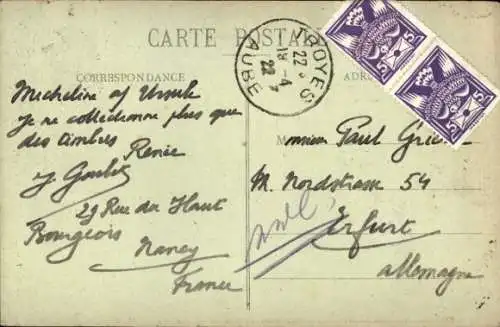 CARTE POSTALE
CORRESPONDANCE
TROYES
22
18 - 4
22
AUBE
5
5
5
5
Micheline et Ursule
Je ne collectionne plus que
des timbres
Renée
29 Rue du Haut
Bourgeois
Nancy
France
Paul
M. Nordstrasse 54
Erfurt
Allemagne